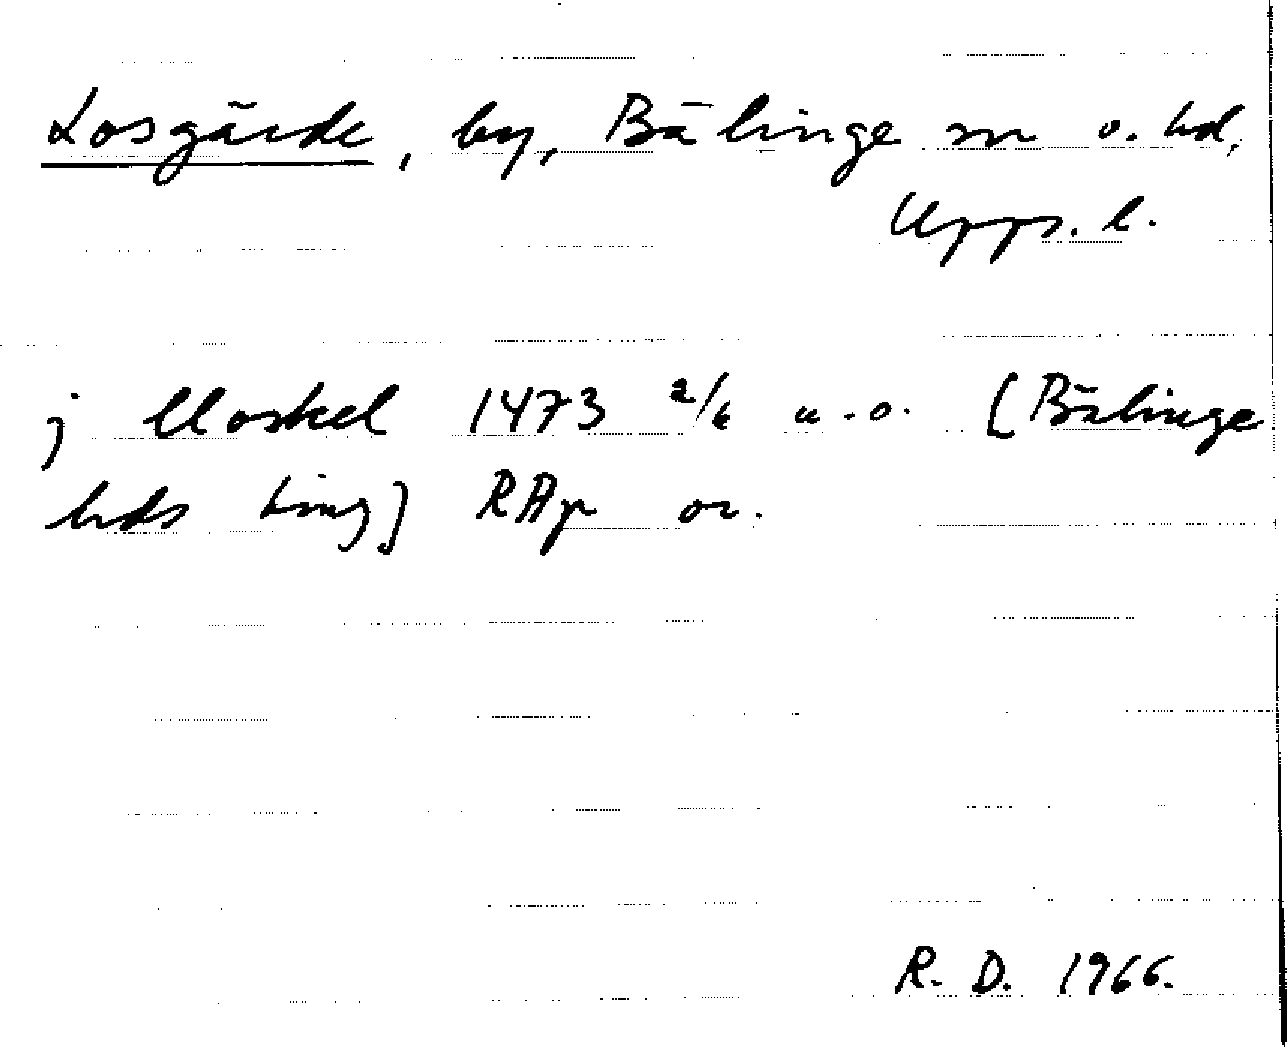 Losgärde, by, Bälinge sn o. hd,
Upps. l.
j Uoskel 1473 2/6 u.o. [Bälinge
hds ting] RAp or.
R. D. 1966.